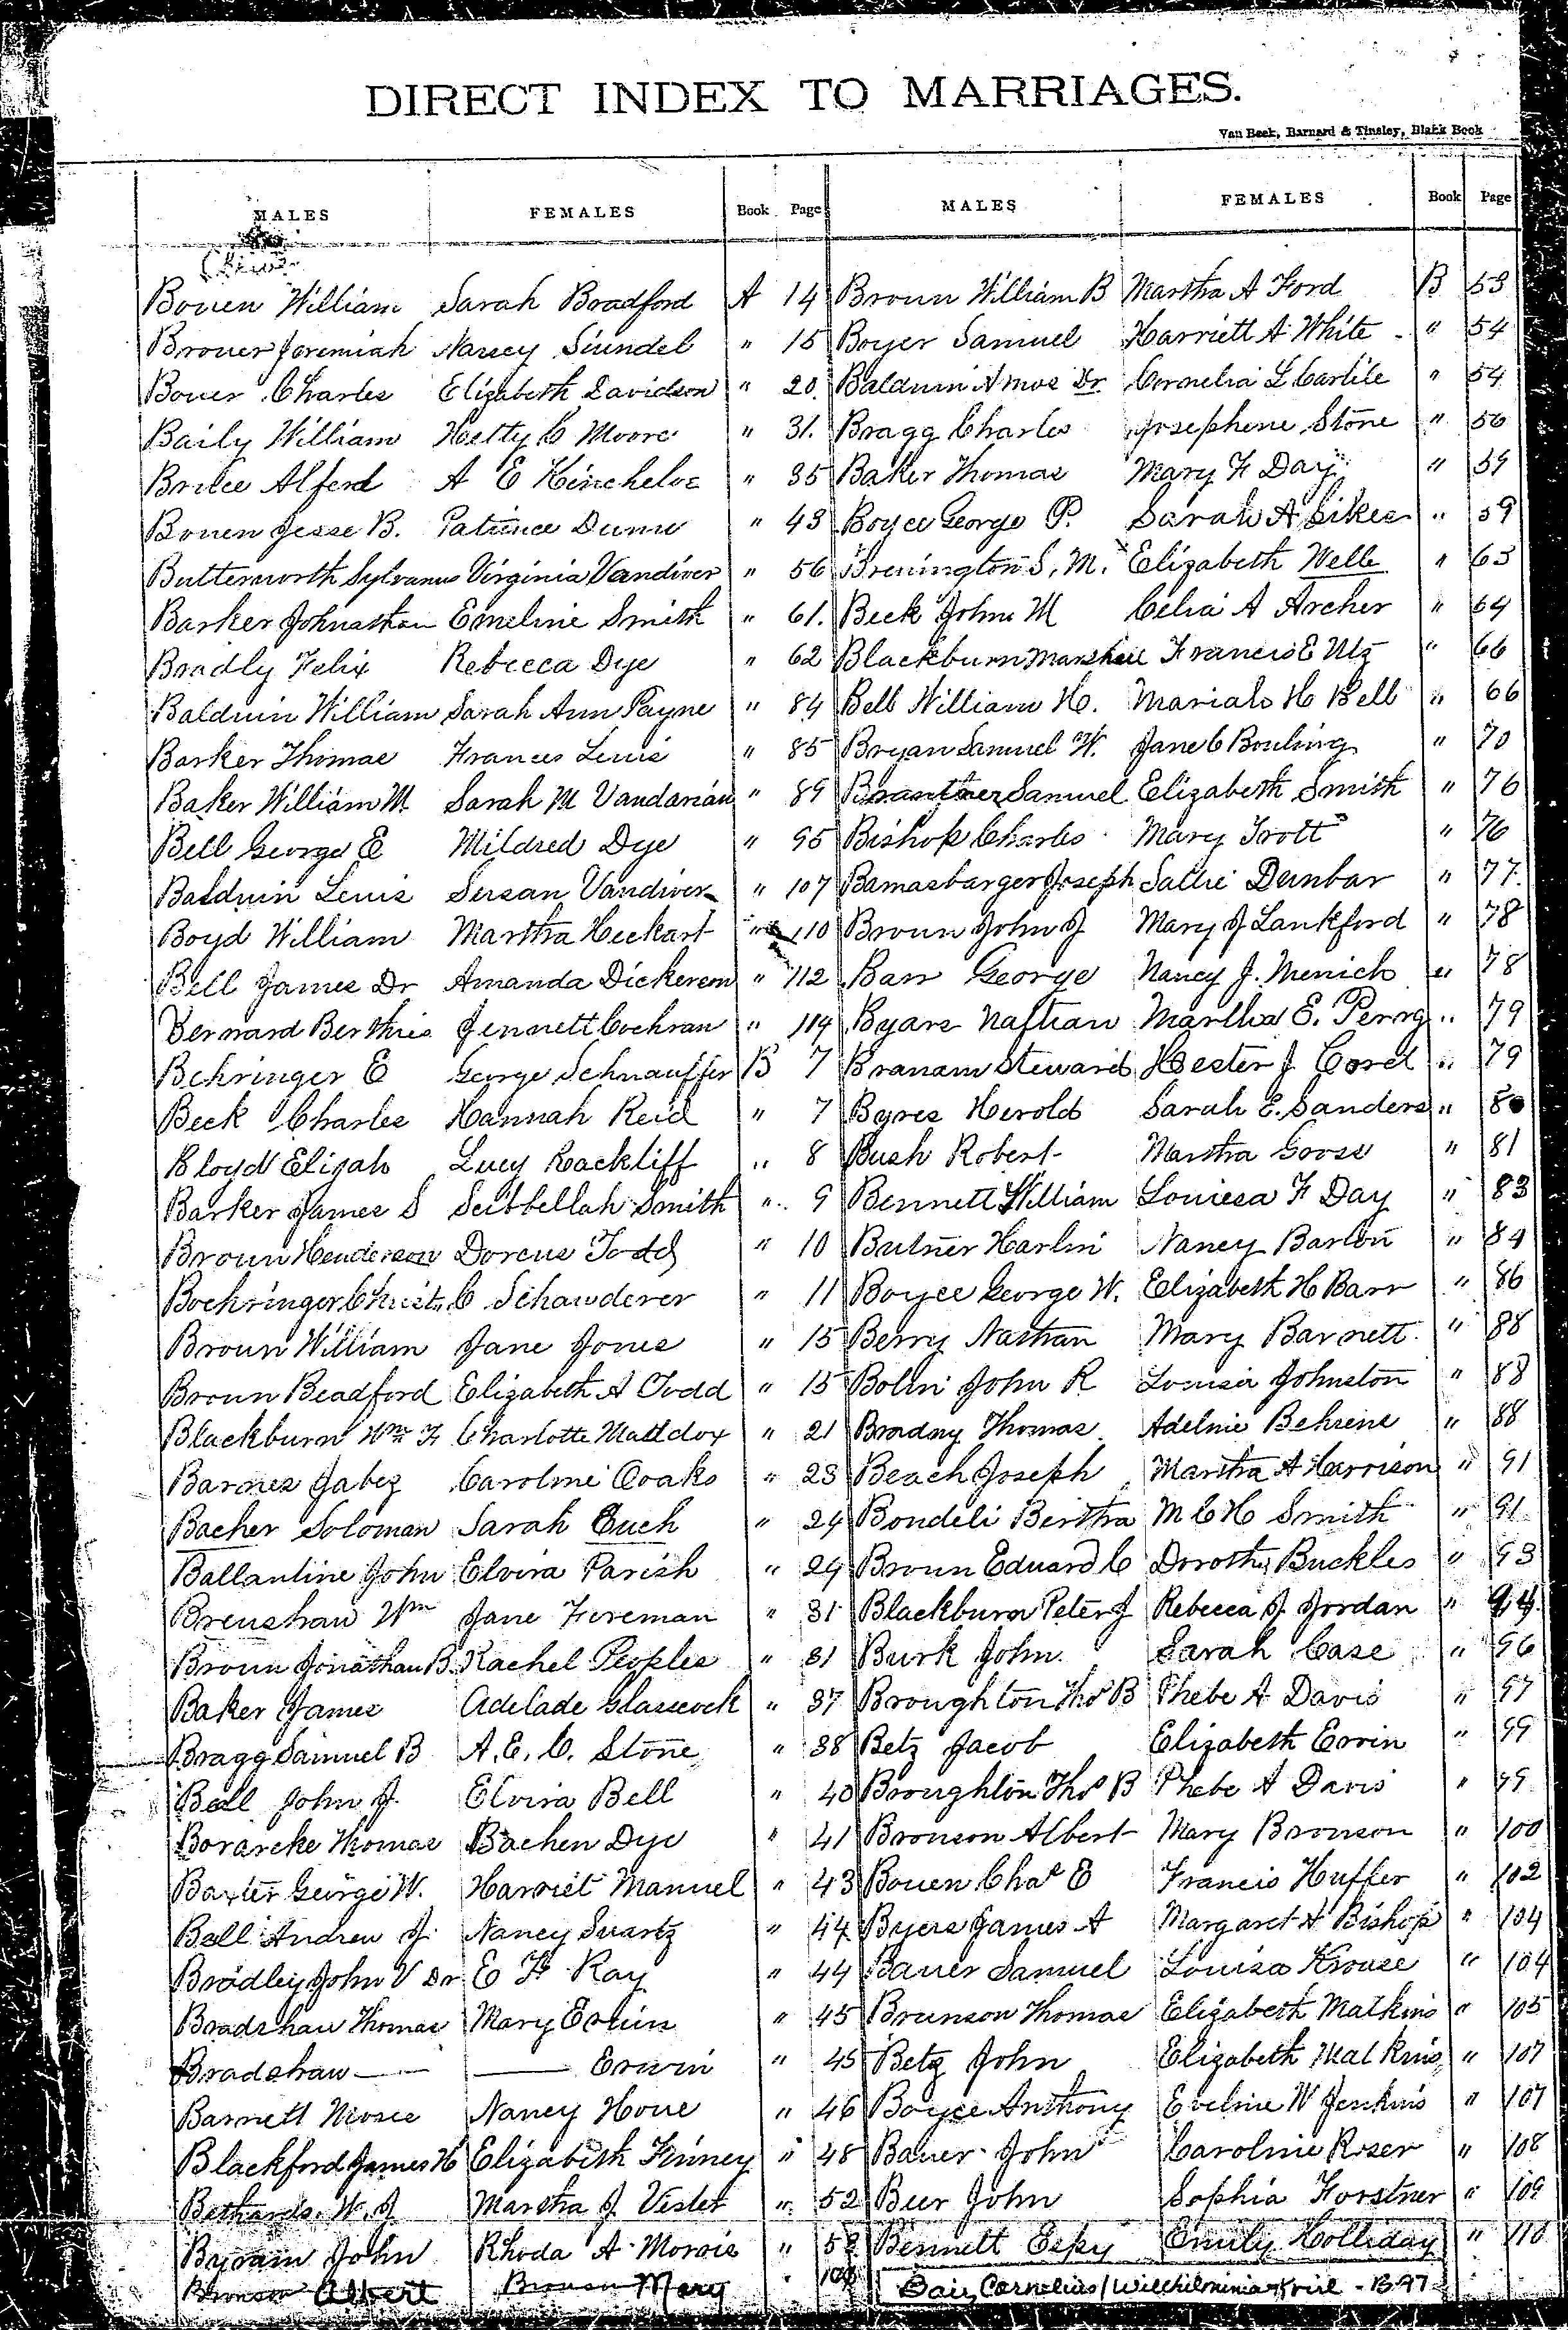 DIRECT INDEX TO MARRIAGES.
Van Beek, Barnard & Tinsley, Blank Book
MALES FEMALES Book Page MALES FEMALES Book Page
Bowen William Sarah Bradford A 14 Brown William B Martha A Ford B 53
Brower Jeremiah Nancy " 15 Boyer Samuel Harriett A White " 54
Bower Charles Elizabeth Davidson " 20 Baldwin Amos Dr. Cornelia L Carlile " 54
Baily William Hetty C Moore " 31. Bragg Charles Josephene Stone " 56
Bruce Alferd A E Hincheloe " 35 Baker Thomas Mary F Day " 59
Bowen Jesse B. Patience Dunn " 43 Boyce George P. Sarah A Sikes " 59
Butterworth Sylvanus Virginia Vandiver " 56 Brenington S. M. Elizabeth Wells " 63
Barker Johnathan Emeline Smith " 61. Beck John M Celia A Archer " 64
Bradly Felix Rebecca Dye " 62 Blackburn Marshall Francis E Utz " 66
Baldwin William Sarah Ann Payne " 84 Bell William H. Mariah H Bell " 66
Barker Thomas Frances Lewis " 85 Bryan Samuel W. Jane C Bowling " 70
Baker William M. Sarah M Vandarian " 89 Samuel Elizabeth Smith " 76
Bell George E Mildred Dye " 95 Bishop Charles Mary Trott " 76
Baldwin Lewis Susan Vandiver " 107 Bamasbarger Joseph Sallie Dunbar " 77.
Boyd William Martha Heckart " 110 Brown John J Mary J Lankford " 78
Bell James Dr Amanda Dickerson " 112 Barr George Nancy J. Menich " 78
Bernard Berthie Jennett Cochran " 114 Byars Nathan Martha E. Perry " 79
Behringer E George Schnauffer B 7 Branam Steward Hester J Cord " 79
Beck Charles Hannah Reid " 7 Byres Herold Sarah E. Sanders " 80
Bloyd Elijah Lucy Rackliff " 8 Bush Robert Martha Gooss " 81
Barker James S Seibbellah Smith " 9 Bennett William Louiesa F Day " 83
Brown Henderson Dorcus Todd " 10 Butner Harlin Nancy Barton " 84
Boehringer Christ. C Schawderer " 11 Boyce George W. Elizabeth H Barr " 86
Brown William Jane Jones " 15 Berry Nathan Mary Barnett " 88
Brown Beadford Elizabeth A Todd " 15 Bolin John R Louisa Johnston " 88
Blackburn Wm F Charlotte Maddox " 21 Bradny Thomas Adelnie Behrens " 88
Barnes Jabez Caroline Ooaks " 23 Beach Joseph Martha A Harrison " 91
Bacher Soloman Sarah Euch " 24 Bondeli Bertha M C H Smith " 91
Ballantine John Elvira Parish " 29 Brown Edward C Dorothy Buckles " 93
Brenshaw Wm Jane Fireman " 31 Blackburn Peter J Rebecca J Jordan " 94
Brown Jonathan B. Rachel Peoples " 31 Burk John Sarah Case " 96
Baker James Adelade Glasscock " 37 Broughton Thos B Phebe A Davis " 97
Bragg Samuel B A. E. C. Stone " 38 Betz Jacob Elizabeth Ervin " 99
Ball John J. Elvira Bell " 40 Broughton Thos B Phebe A Davis " 99
Borarcke Thomas Bachen Dye " 41 Bronson Albert Mary Bronson " 100
Baxter George W. Harriet Manuel " 43 Bowen Chas E Francis Huffer " 102
Ball Andrew J. Nancy Swartz " 44 Byers James A Margaret A Bishop " 104
Bradley John V Dr E F Ray " 44 Bauer Samuel Louisa Krouse " 104
Bradshaw Thomas Mary Erwin " 45 Brunson Thomas Elizabeth Matkins " 105
Bradshaw — — Erwin " 45 Betz John Elizabeth Matkins " 107
Barnett Moses Nancy Howe " 46 Boyce Anthony Eveline W Jenkins " 107
Blackford James H Elizabeth Finney " 48 Bauer John Caroline Roser " 108
Bethards W. J Martha J Veslet " 52 Beer John Sophia Forstner " 109
John Rhoda A Morris " 52 Bennett Espy Emily Holliday " 110
Bronson Albert Bronson Mary " 100 Bair, Cornelius / Wilchilminia Krill - B97